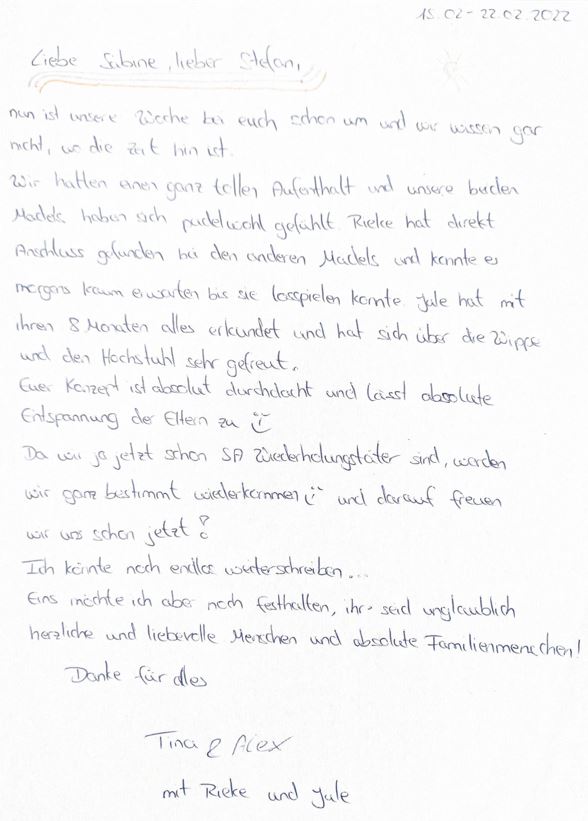 15.02-22.02.2022
Liebe Sabine, lieber Stefan,
nun ist unsere Woche bei euch schon um und wir wissen gar
nicht, wo die Zeit hin ist.
Wir hatten einen ganz tollen Aufenthalt und unsere beiden
Mädels haben sich pudelwohl gefühlt. Rieke hat direkt
Anschluss gefunden bei den anderen Mädels und konnte es
morgens kaum erwarten bis sie losspielen konnte. Jule hat mit
ihren 8 Monaten alles erkundet und hat sich über die Wippe
und den Hochstuhl sehr gefreut.
Euer Konzept ist absolut durchdacht und lässt absolute
Entspannung der Eltern zu
Da wir ja jetzt schon Wiederholungstäter sind, werden
wir ganz bestimmt wiederkommen und darauf freuen
wir uns schon jetzt!
Ich könnte noch endlos weiterschreiben...
Eins möchte ich aber noch festhalten, ihr seid unglaublich
herzliche und liebevolle Menschen und absolute Familienmenschen!
Danke für alles
Tina & Alex
mit Rieke und Jule